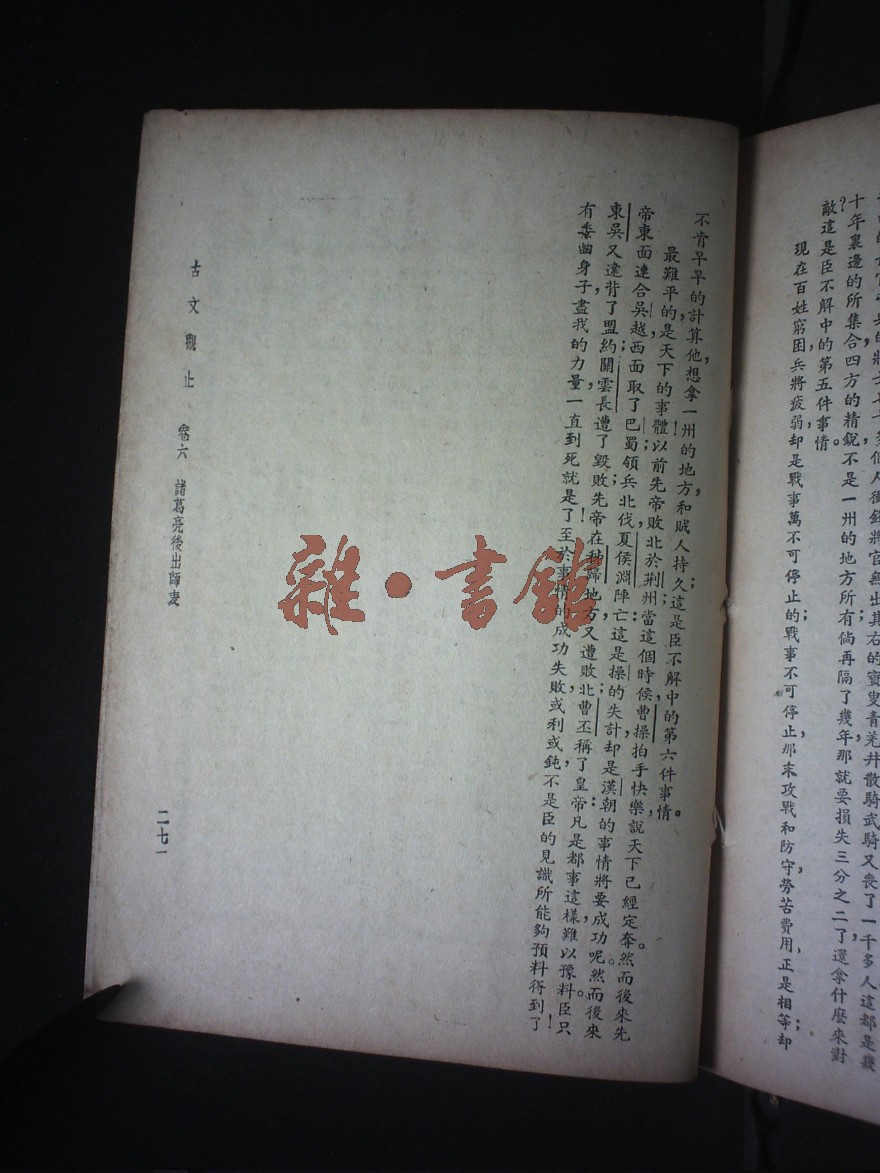 十年裏邊的所集合四方的精銳，不是一州的地方所有；倘再隔了幾年，那就要損失三分之二了，還拿什麼來對
敵？這是臣不解中的第五件事情。
現在百姓窮困，兵將疲弱，却是戰事萬不可停止的；戰事不可停止，那末攻戰和防守，勞苦費用，正是相等；却
不肯早早的計算他，想拿一州的地方，和賊人持久；這是臣不解中的第六件事情。
最難平的，是天下的事體！以前先帝敗北於荆州；當這個時候，曹操拍手快樂，說天下已經定奪。然而後來先
帝東面連合吳越，西面取了巴蜀，領兵北伐，夏侯淵陣亡：這是操的失計，却是漢朝的事情將要成功呢。然而後來
東吳又違背了盟約，關雲長遭了毀敗；先帝在秭歸地方，又遭敗北；曹丕稱了皇帝：凡是都事這樣，難以豫料。臣只
有委曲身子，盡我的力量，一直到死就是了！至於事情的成功失敗，或利或鈍，不是臣的見識所能夠預料得到了！
古文觀止 卷六 諸葛亮後出師表
二七一
雜·書館